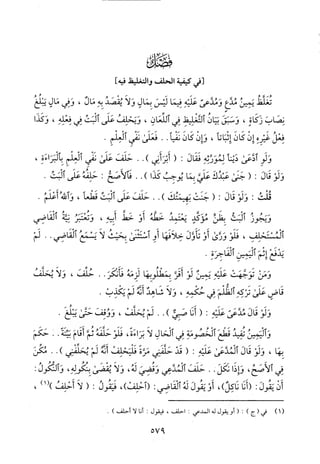 فصل
[في كيفية الحلف والتغليظ فيه]
تُغَلَّظُ يَمِينُ مُدَّعٍ وَمُدَّعًى عَلَيْهِ فِيمَا لَيْسَ بِمَالٍ وَلاَ يُقْصَدُ بِهِ مَالٌ ، وَفِي مَالٍ يَبْلُغُ
نِصَابَ زَكَاةٍ ، وَسَبَقَ بَيَانُ التَّغْلِيظِ فِي اللِّعَانِ ، وَيَحْلِفُ عَلَى الْبَتِّ فِي فِعْلِهِ ، وَكَذَا
فِعْلُ غَيْرِهِ إِنْ كَانَ إِثْبَاتاً ، وَإِنْ كَانَ نَفْياً .. فَعَلَى نَفْيِ الْعِلْمِ .
وَلَوِ ادَّعَى دَيْناً لِمُوَرِّثِهِ فَقَالَ : ( أَبْرَأَنِي ) .. حَلَفَ عَلَى نَفْيِ الْعِلْمِ بِالْبَرَاءَةِ ،
وَلَوْ قَالَ : ( جَنَى عَبْدُكَ عَلَيَّ بِمَا يُوجِبُ كَذَا ) .. فَالأَصَحُّ : حَلِفُهُ عَلَى الْبَتِّ .
قُلْتُ : وَلَوْ قَالَ : ( جَنَتْ بَهِيمَتُكَ ) .. حَلَفَ عَلَى الْبَتِّ قَطْعاً ، وَاللهُ أَعْلَمُ .
وَيَجُوزُ الْبَتُّ بِظَنٍّ مُؤَكَّدٍ يَعْتَمِدُ خَطَّهُ أَوْ خَطَّ أَبِيهِ ، وَتُعْتَبَرُ نِيَّةُ الْقَاضِي
الْمُسْتَحْلِفِ ، فَلَوْ وَرَّى أَوْ تَأَوَّلَ خِلاَفَهَا أَوِ اسْتَثْنَى بِحَيْثُ لاَ يَسْمَعُ الْقَاضِي .. لَمْ
يَدْفَعْ إِثْمَ الْيَمِينِ الْفَاجِرَةِ .
وَمَنْ تَوَجَّهَتْ عَلَيْهِ يَمِينٌ لَوْ أَقَرَّ بِمَطْلُوبِهَا لَزِمَهُ فَأَنْكَرَ .. حُلِّفَ ، وَلاَ يُحَلَّفُ
قَاضٍ عَلَى تَرْكِهِ الظُّلْمَ فِي حُكْمِهِ ، وَلاَ شَاهِدٌ أَنَّهُ لَمْ يَكْذِبْ .
وَلَوْ قَالَ مُدَّعًى عَلَيْهِ : ( أَنَا صَبِيٌّ ) .. لَمْ يُحَلَّفْ ، وَوُقِفَ حَتَّى يَبْلُغَ .
وَالْيَمِينُ تُفِيدُ قَطْعَ الْخُصُومَةِ فِي الْحَالِ لاَ بَرَاءَةً ، فَلَوْ حَلَّفَهُ ثُمَّ أَقَامَ بَيِّنَةً .. حُكِمَ
بِهَا ، وَلَوْ قَالَ الْمُدَّعَى عَلَيْهِ : ( قَدْ حَلَّفَنِي مَرَّةً فَلْيَحْلِفْ أَنَّهُ لَمْ يُحَلِّفْنِي ) .. مُكِّنَ
فِي الأَصَحِّ ، وَإِذَا نَكَلَ .. حَلَفَ الْمُدَّعِي وَقُضِيَ لَهُ ، وَلاَ يُقْضَى بِنُكُولِهِ ، وَالنُّكُولُ :
أَنْ يَقُولَ : ( أَنَا نَاكِلٌ )، أَوْ يَقُولَ لَهُ الْقَاضِي : ( احْلِفْ )، فَيَقُولُ : ( لاَ أَحْلِفُ )(١) ،
(١) في (ج) : ( أو يقول له المدعي : احلف ، فيقول : أنا لا أحلف ) .
٥٧٩